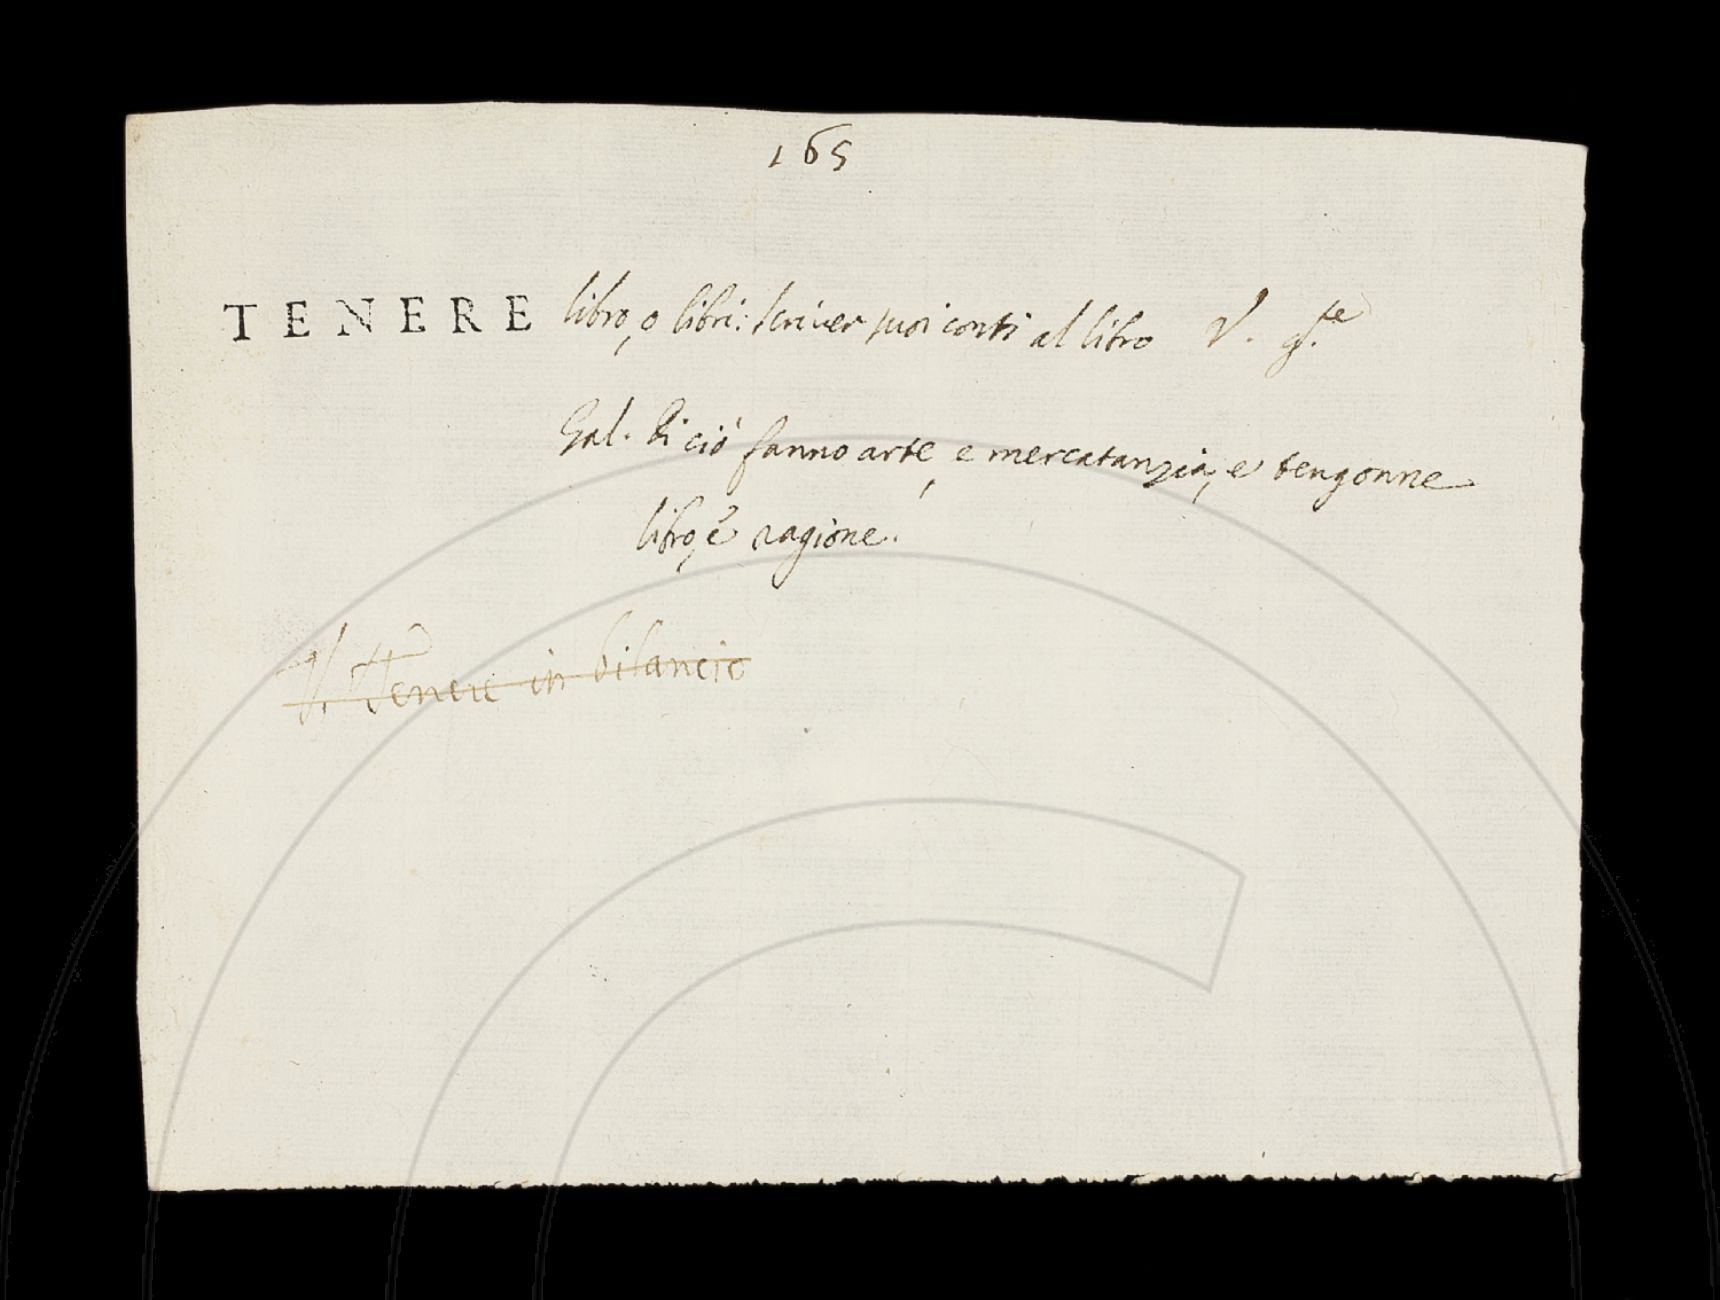 165
TENERE libro, o libri: scriver suoi conti al libro V. g.te
Gal. Di ciò fanno arte, e mercatanzia, e tengonne
libro, e ragione.
V. Tenere in bilancio